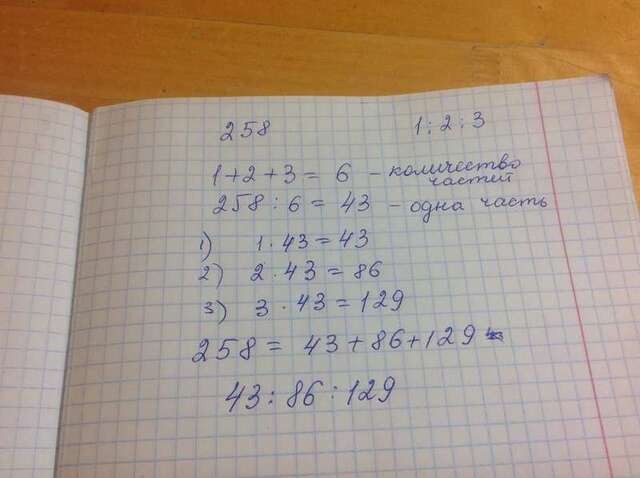 258 1 : 2 : 3
1 + 2 + 3 = 6 – количество частей
258 : 6 = 43 – одна часть
1) 1 · 43 = 43
2) 2 · 43 = 86
3) 3 · 43 = 129
258 = 43 + 86 + 129
43 : 86 : 129